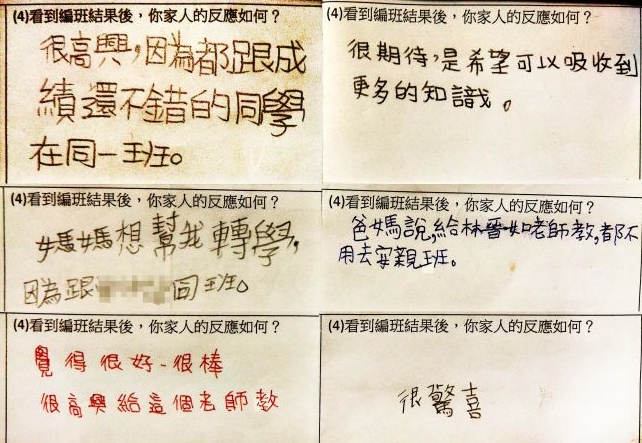 (4)看到編班結果後，你家人的反應如何？
很高興，因為都跟成
績還不錯的同學
在同一班。
(4)看到編班結果後，你家人的反應如何？
很期待，是希望可以吸收到
更多的知識。
(4)看到編班結果後，你家人的反應如何？
媽媽想幫我轉學，
因為跟同班。
(4)看到編班結果後，你家人的反應如何？
爸媽說，給林晉如老師教，都不
用去安親班。
(4)看到編班結果後，你家人的反應如何？
覺得很好-很棒
很高興給這個老師教
(4)看到編班結果後，你家人的反應如何？
很驚喜